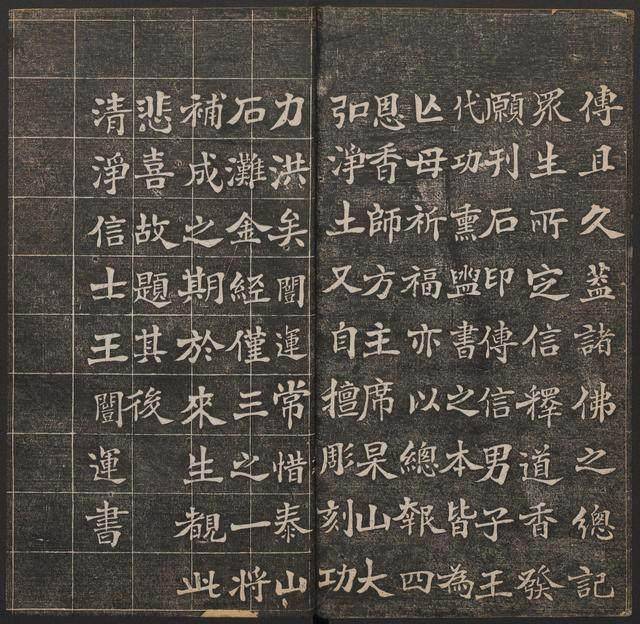 傳且久蓋諸佛之總記
眾生所㝎信釋道香發
願刊石印傳信男子王
代功熏盥書之本皆為
亾母祈福亦以總報四
恩香師方主席杲山大
弘淨土又自擅彫刻功
力洪矣闓運常惜泰山
石灘金經僅三之一將
補成之期於來生覩此
悲喜故題其後
清淨信士王闓運書